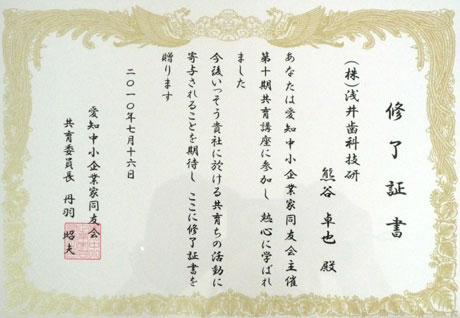 修了証書
(株)浅井歯科技研
熊谷 卓也 殿
あなたは愛知中小企業家同友会主催
第十期共育講座に参加し 熱心に学ばれ
ました
今後いっそう貴社に於ける共育ちの活動に
寄与されることを期待し ここに修了証書を
贈ります
二〇一〇年七月十六日
愛知中小企業家同友会
共育委員長 丹羽 昭夫